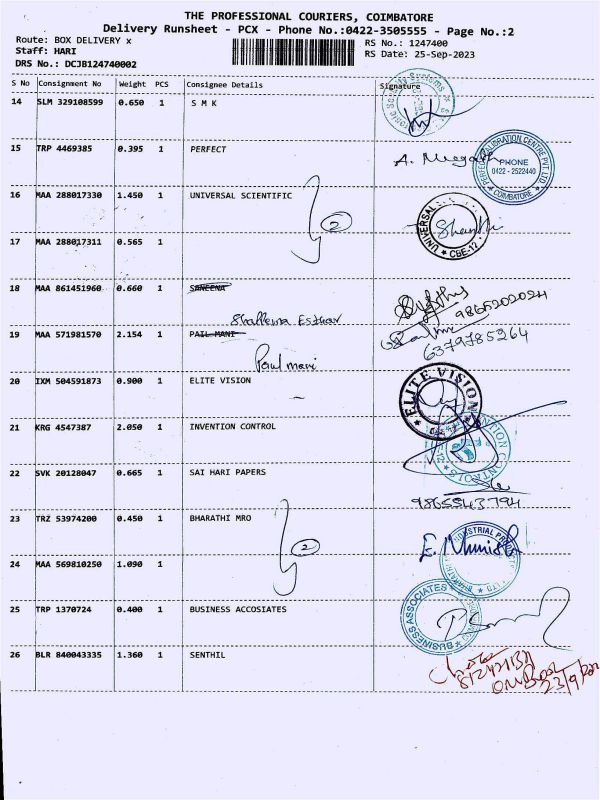 THE PROFESSIONAL COURIERS, COIMBATORE
Delivery Runsheet - PCX - Phone No.:0422-3505555 - Page No.:2
Route: BOX DELIVERY x
RS No.: 1247400
Staff: HARI
RS Date: 25-Sep-2023
DRS No.: DCJB124740002
S No Consignment No Weight PCS Consignee Details Signature
14 SLM 329108599 0.650 1 S M K
15 TRP 4469385 0.395 1 PERFECT
PHONE
0422 - 2522440
COIMBATORE
16 MAA 288017330 1.450 1 UNIVERSAL SCIENTIFIC
2
UNIVERSAL
CBE-12
17 MAA 288017311 0.565 1
18 MAA 861451960 0.660 1 SANEENA
9865202024
19 MAA 571981570 2.154 1 PAIL MANI
6379785264
Paul mani
20 IXM 504591873 0.900 1 ELITE VISION
ELITE VISION
21 KRG 4547387 2.050 1 INVENTION CONTROL
22 SVK 20128047 0.665 1 SAI HARI PAPERS
9865543794
23 TRZ 53974200 0.450 1 BHARATHI MRO
2
24 MAA 569810250 1.090 1
25 TRP 1370724 0.400 1 BUSINESS ACCOSIATES
BUSINESS ASSOCIATES
26 BLR 840043335 1.360 1 SENTHIL